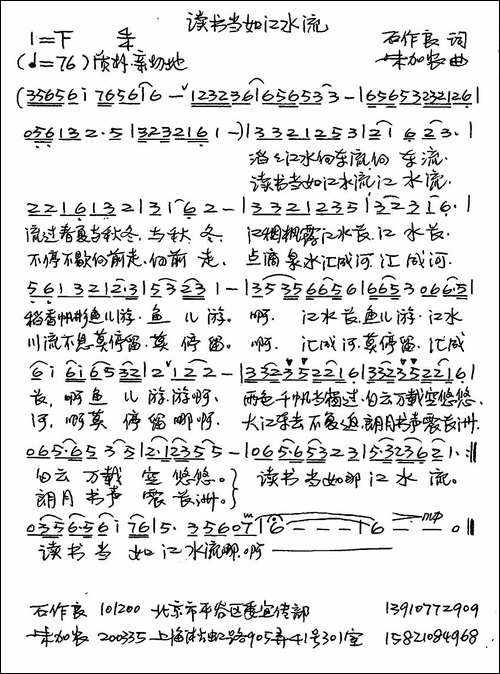 读书当如江水流
1=F 4/4 石作良 词
(♩=76) 质朴.亲切地 朱加农 曲
(35656i 7656i6 - 1232361656533 - 1656532321261
0561322·5 13232161 -)1 3 3 2 1 2 5 3 1 2 i 6 2 3·1
滔滔江水向东流,向 东流.
读书当如江水流,江 水流.
2 2 1 6 1 3 2 1 3 1 6 2 - 1 3 3 2 1 2 3 5 1 3 2 3 1 6·1
流过春夏与秋冬,与秋 冬. 江 江水长,江 水长.
不停不歇向前走,向前 走. 点滴泉水汇成河,汇成河.
5 6 1 3 2 1 2·3 1 5 3 2 3 1 - 1 3 5 3 5 6 6 5 6 1 6 6 5 3 0 6 6 5 1
稻香 鱼儿游.鱼 儿 游. 啊. 江水长,鱼儿游.江水
川流不息莫停留,莫 停 留. 啊. 汇成河,莫停留.汇成
6 i 6 i 6 5 3 2 1 2 1 2 2 - 1 3 3 2 3 5 2 2 1 6 1 3 3 2 3 5 2 2 1 6 1
长,啊鱼 儿 游.游啊. 两岸千帆 过,白云万载空悠悠.
河,啊莫 停 留哪啊. 大江东去不复返,朗月书声震长洲.
0 6 5·6 5 3 5 1 2·1 2 3 5 5 - 1 0 6 5·6 5 3 2 3 1 5·3 2 3 6 2 1·:‖
白云 万载 空 悠悠.} 读书 当如那 江 水 流.
朗月 书声 震 长洲.}
0 3 5 6·5 6 i 7 6 1 5· 3 5 6 0 7 1 6 - - - 1 6 - - 0 ‖ mp
读书 当 如 江 水流哪.啊
石作良 101200 北京市平谷区委宣传部 13910772909
朱加农 200335 上海 虹路905弄41号301室 15821084968